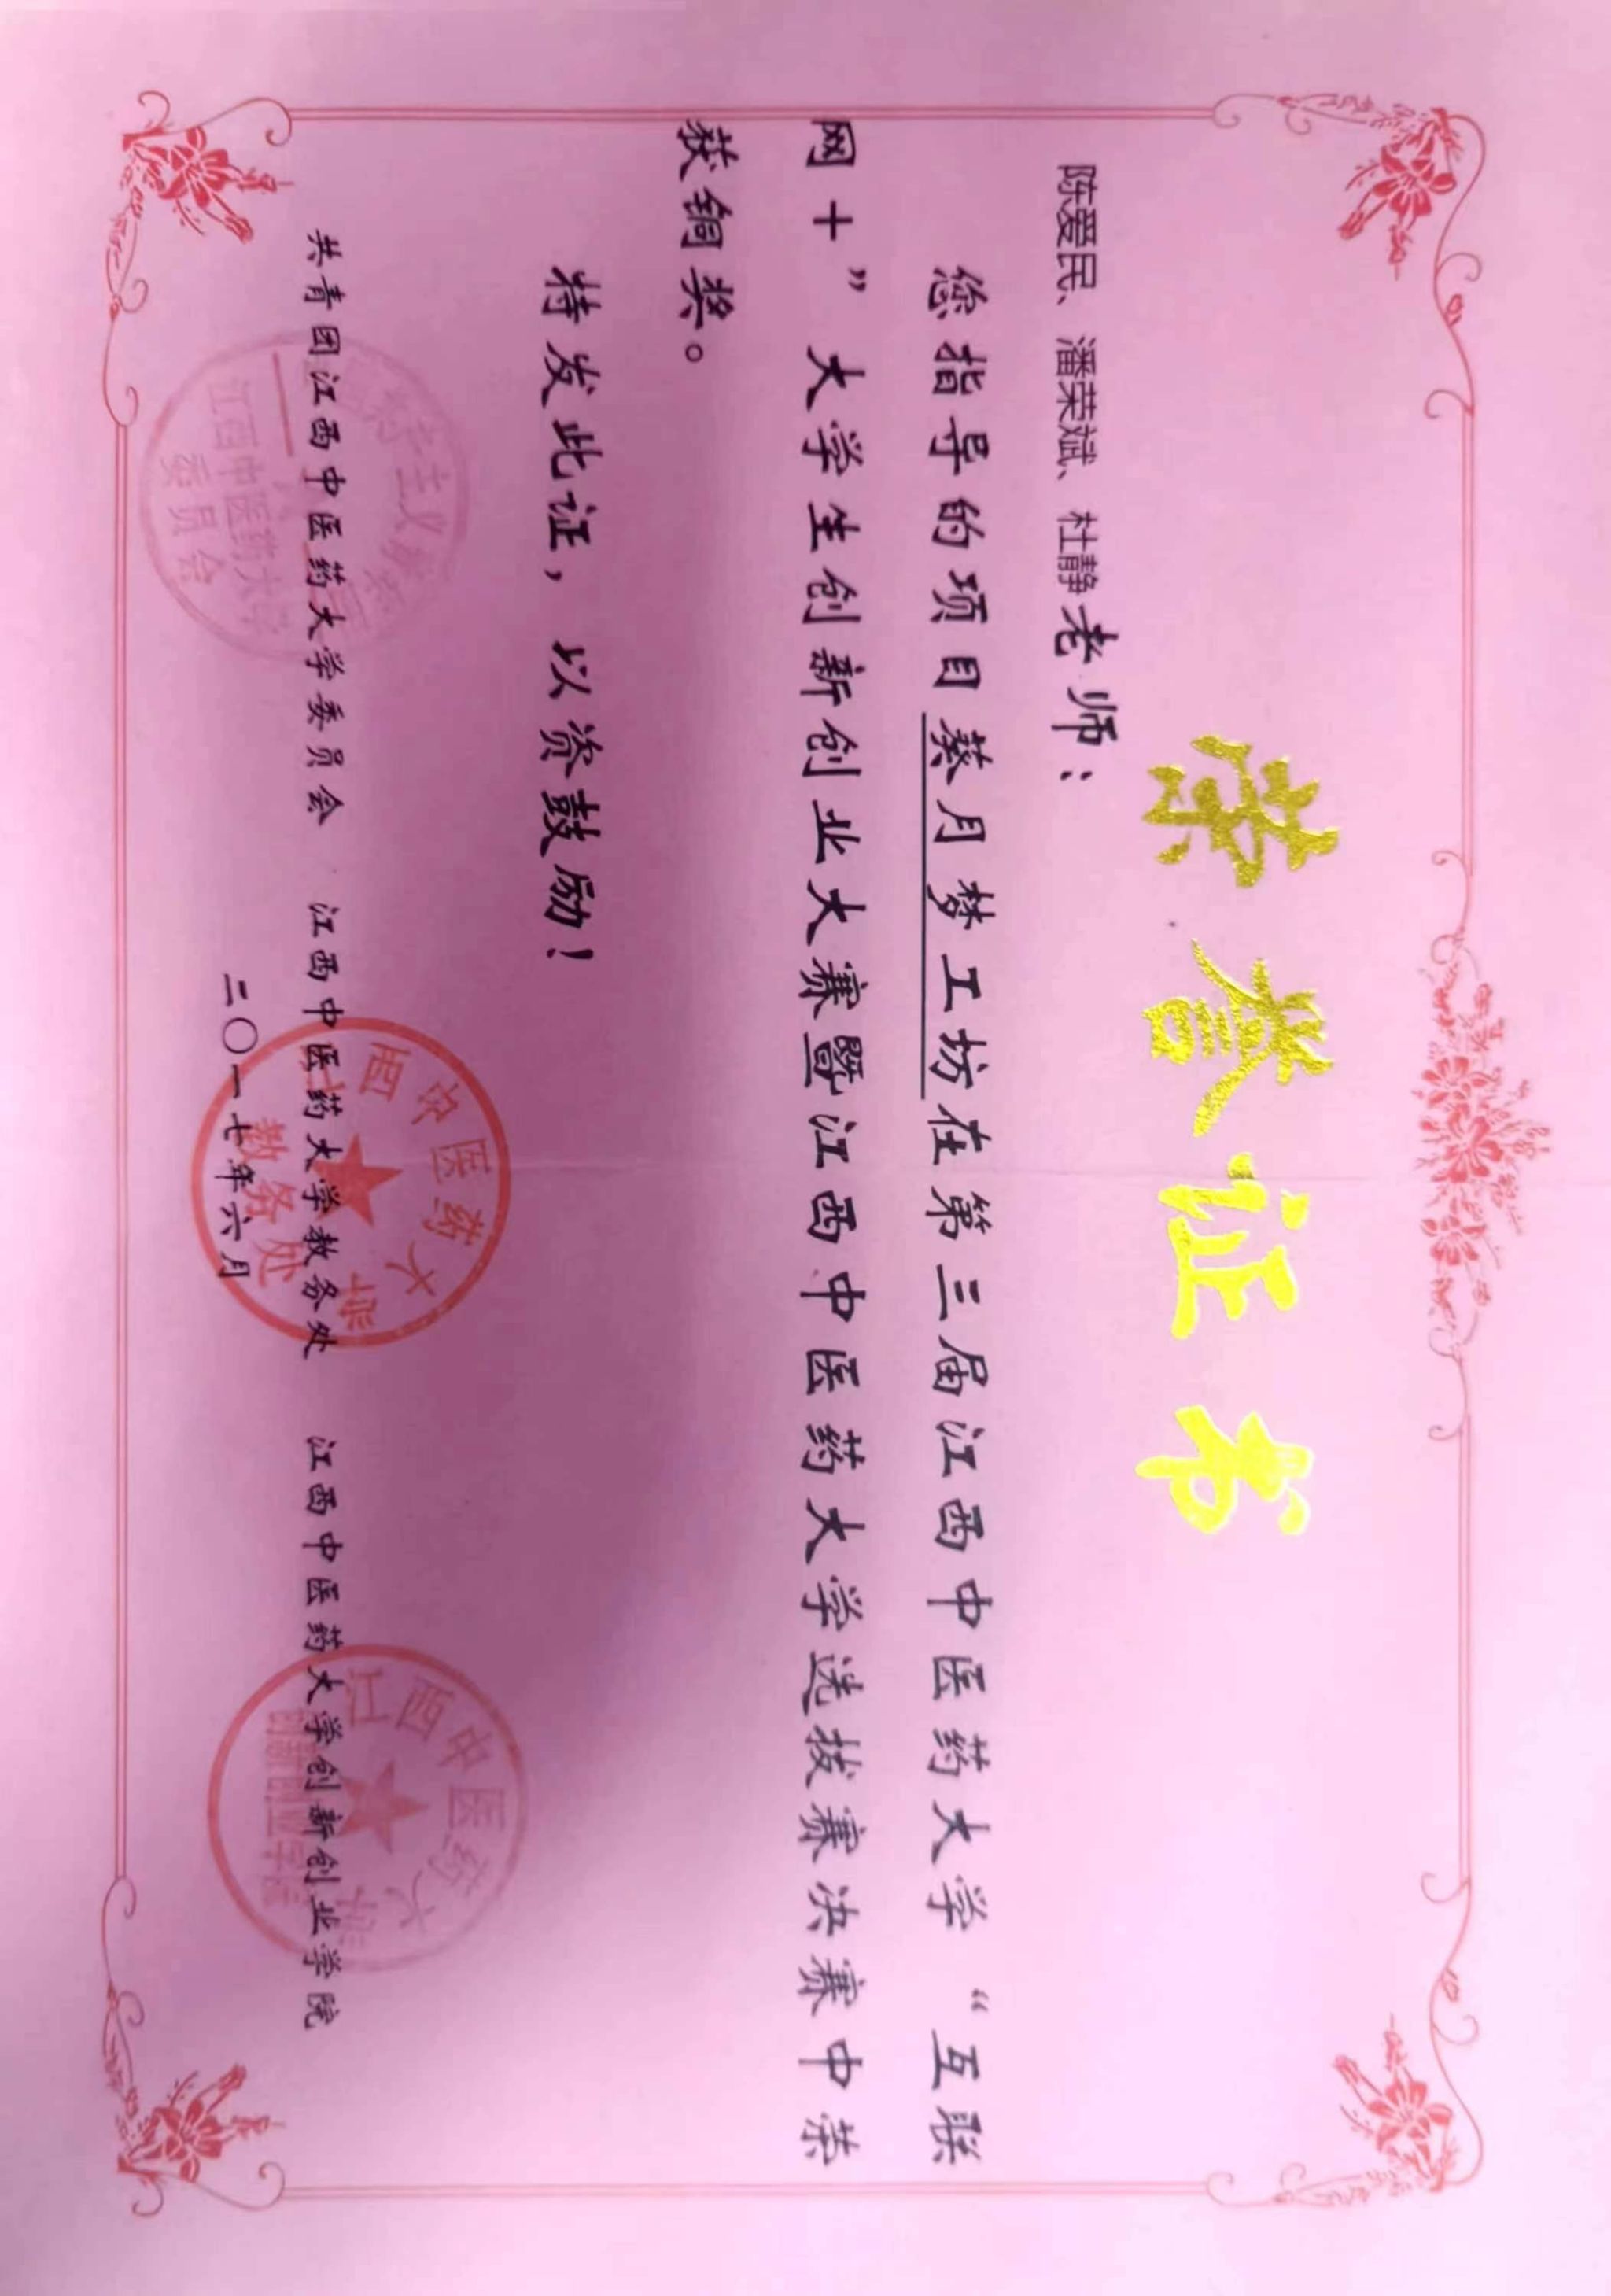 荣誉证书
陈爱民、潘荣斌、杜静老师：
您指导的项目葵月梦工坊在第三届江西中医药大学“互联
网＋”大学生创新创业大赛暨江西中医药大学选拔赛决赛中荣
获铜奖。
特发此证，以资鼓励！
共青团江西中医药大学委员会 江西中医药大学教务处 江西中医药大学创新创业学院
二〇一七年六月
江西中医药大学
委员会
江西中医药大学
教务处
江西中医药大学
创新创业学院